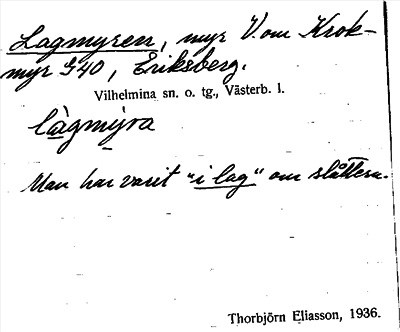 Lagmyren, myr V. om Krok-
myr 940, Eriksberg.
Vilhelmina sn. o. tg., Västerb. l.
làgmýra
Man har varit "i lag" om slåttern.
Thorbjörn Eliasson, 1936.